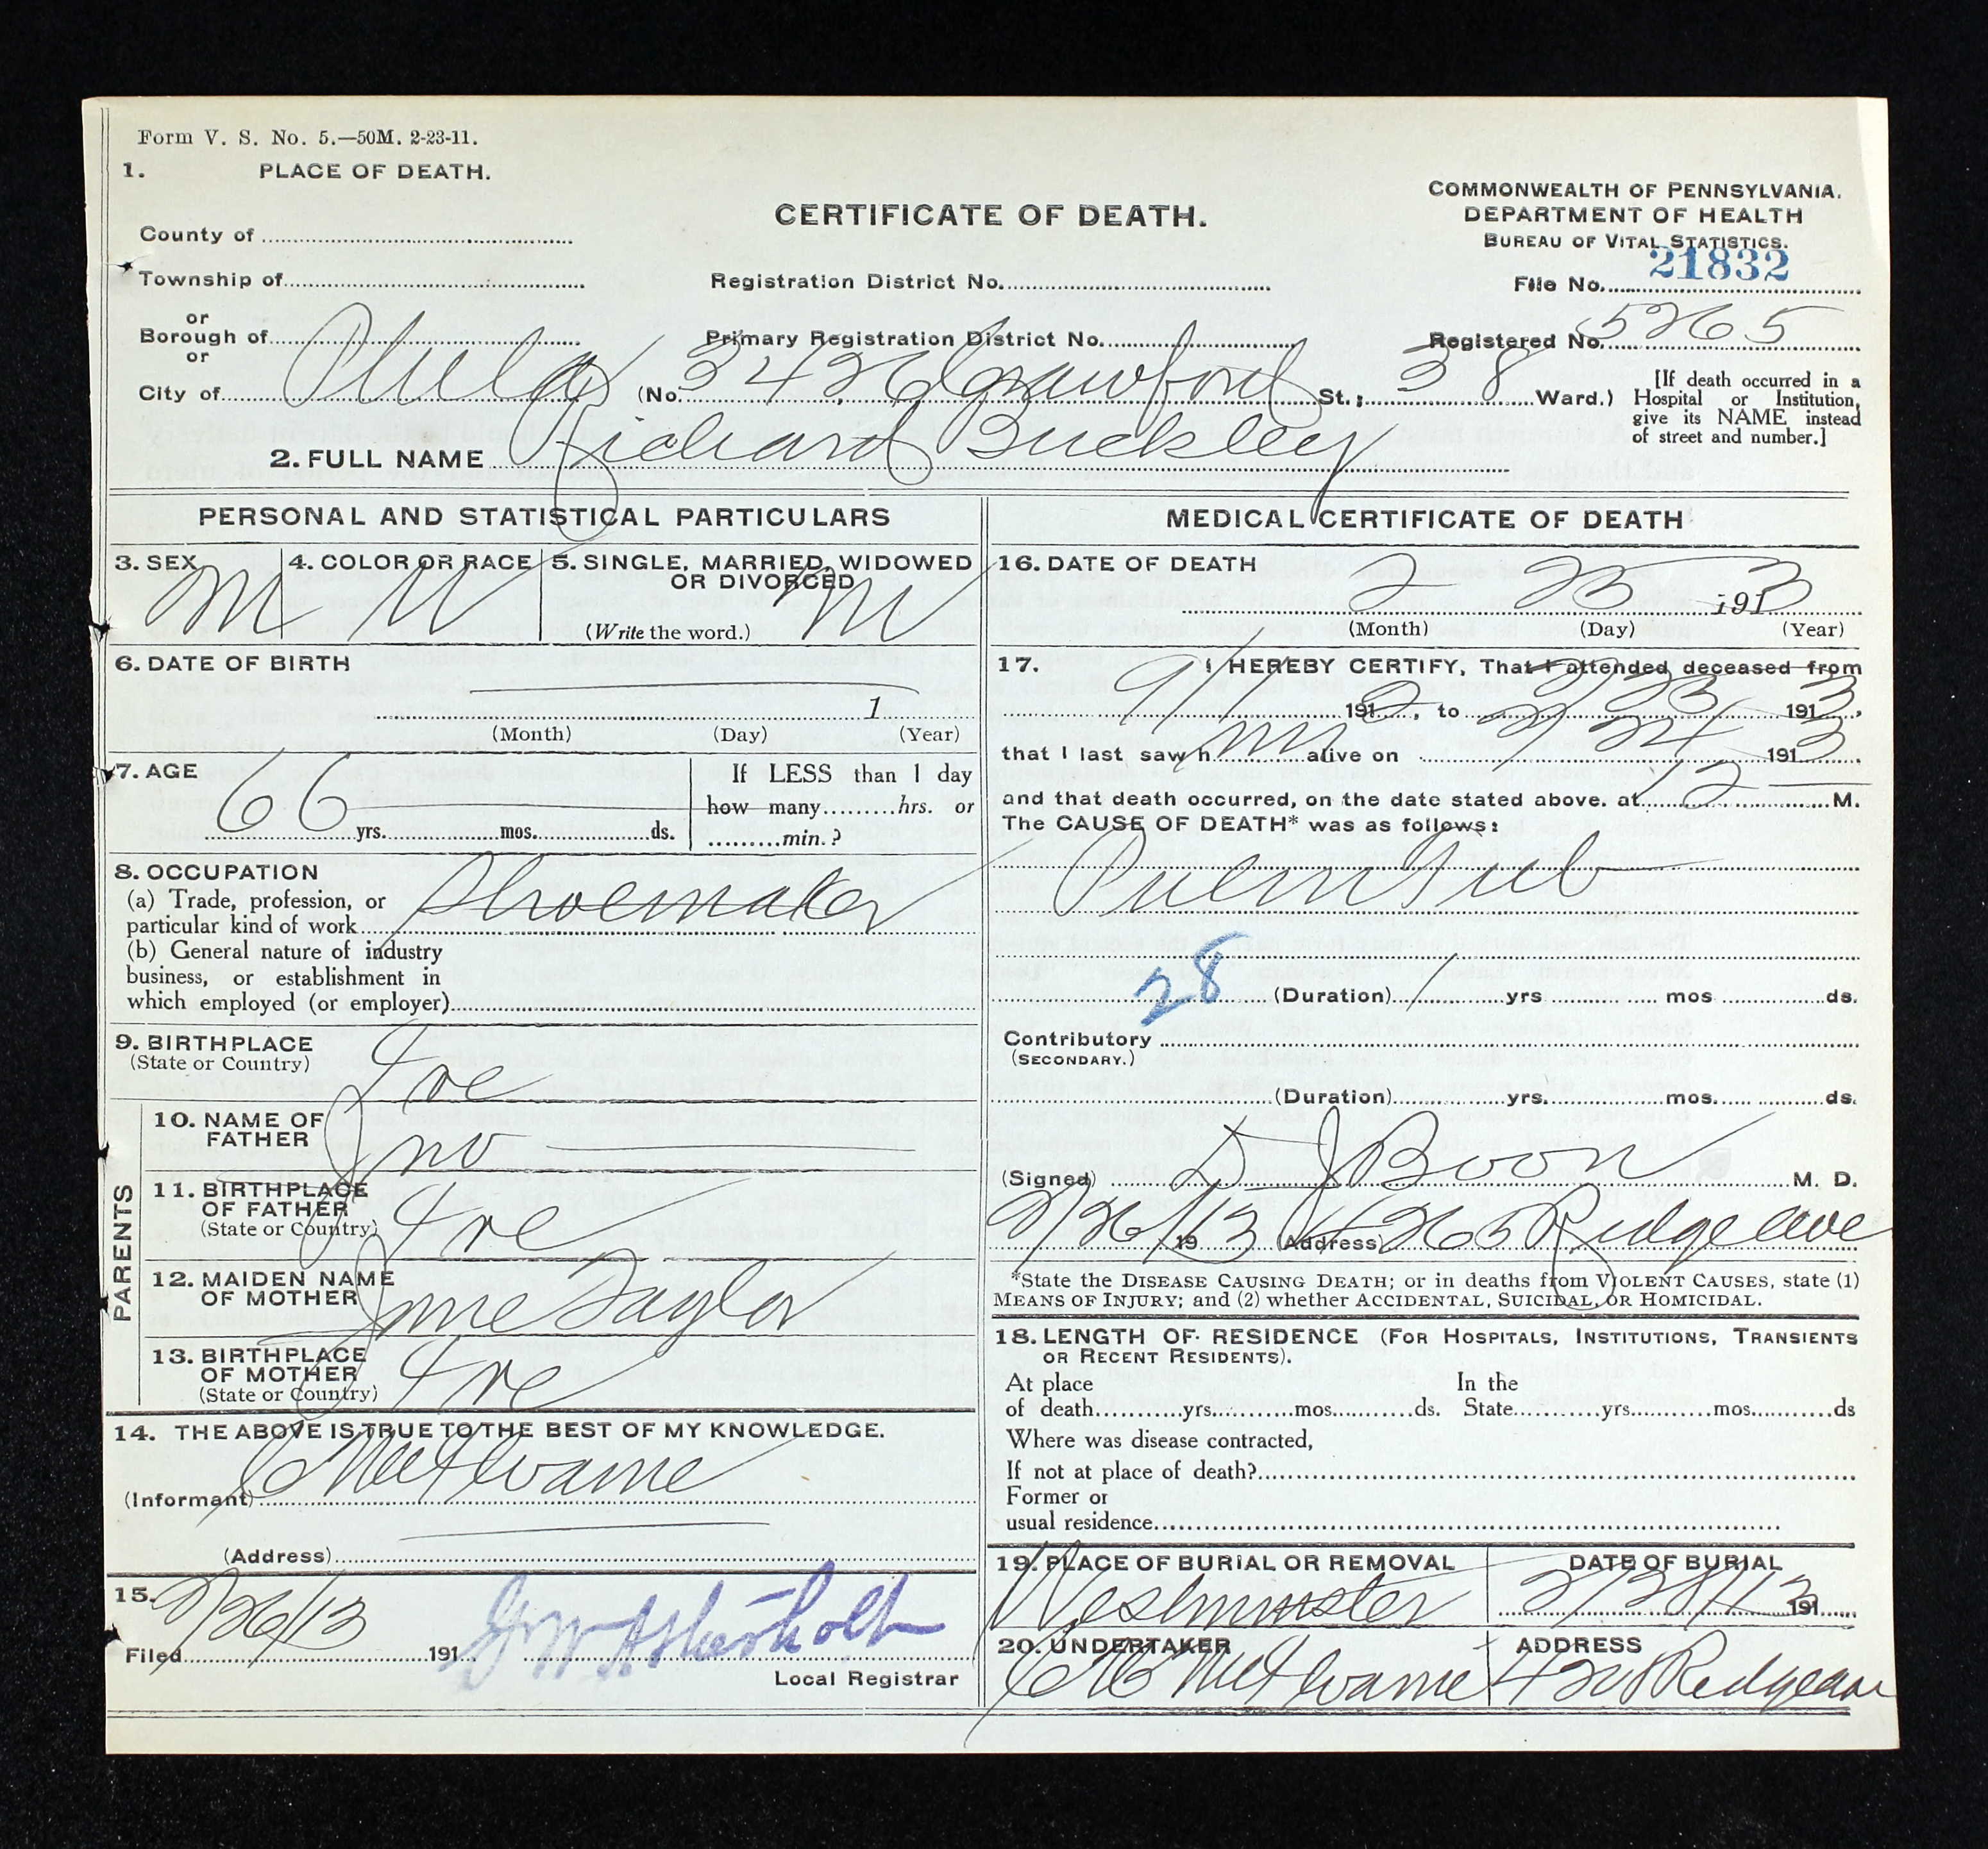 Form V. S. No. 5.—50M. 2-23-11.
1. PLACE OF DEATH.
CERTIFICATE OF DEATH.
COMMONWEALTH OF PENNSYLVANIA.
DEPARTMENT OF HEALTH
BUREAU OF VITAL STATISTICS.
County of
Township of
Registration District No.
File No. 21832
or
Borough of
or
Primary Registration District No.
Registered No. 5265
City of Phila (No. 3426 Crawford St.; 38 Ward.)
[If death occurred in a
Hospital or Institution,
give its NAME instead
of street and number.]
2. FULL NAME Richard Buckley
PERSONAL AND STATISTICAL PARTICULARS
3. SEX M
4. COLOR OR RACE W
5. SINGLE, MARRIED, WIDOWED
OR DIVORCED
(Write the word.) M
6. DATE OF BIRTH
1
(Month) (Day) (Year)
7. AGE
66 yrs. mos. ds.
If LESS than 1 day
how many hrs. or
min.?
8. OCCUPATION
(a) Trade, profession, or
particular kind of work Shoemaker
(b) General nature of industry
business, or establishment in
which employed (or employer)
9. BIRTHPLACE
(State or Country) Ire
PARENTS
10. NAME OF
FATHER Jno
11. BIRTHPLACE
OF FATHER
(State or Country) Ire
12. MAIDEN NAME
OF MOTHER Jane Taylor
13. BIRTHPLACE
OF MOTHER
(State or Country) Ire
14. THE ABOVE IS TRUE TO THE BEST OF MY KNOWLEDGE.
(Informant) C McIlvaine
(Address)
15.
Filed 2/26/13 191
Local Registrar
MEDICAL CERTIFICATE OF DEATH
16. DATE OF DEATH
2 23 1913
(Month) (Day) (Year)
17. I HEREBY CERTIFY, That I attended deceased from
9/1 1912, to 2/23 1913,
that I last saw h m alive on 2/24 1913,
and that death occurred, on the date stated above. at 12 M.
The CAUSE OF DEATH* was as follows:
Pulm Tub
28
(Duration) 1 yrs mos ds.
Contributory
(SECONDARY.)
(Duration) yrs. mos. ds.
(Signed) D J Boon M. D.
2/26/13 19 (Address) 4265 Ridge ave
*State the DISEASE CAUSING DEATH; or in deaths from VIOLENT CAUSES, state (1)
MEANS OF INJURY; and (2) whether ACCIDENTAL, SUICIDAL, OR HOMICIDAL.
18. LENGTH OF RESIDENCE (FOR HOSPITALS, INSTITUTIONS, TRANSIENTS
OR RECENT RESIDENTS).
At place
of death yrs. mos. ds.
In the
State yrs. mos. ds
Where was disease contracted,
If not at place of death?
Former or
usual residence
19. PLACE OF BURIAL OR REMOVAL
Westminster
DATE OF BURIAL
2/28/13 191
20. UNDERTAKER
McIlvaine
ADDRESS
Ridge ave